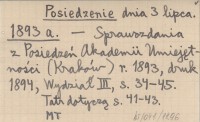 Posiedzenie dnia 3 lipca.
1893 a. — Sprawozdania
z Posiedzeń Akademii Umiejęt-
ności (Kraków) r. 1893, druk
1894, Wydział III, s. 34-45.
Tab dotyczą s. 41-43.
MT